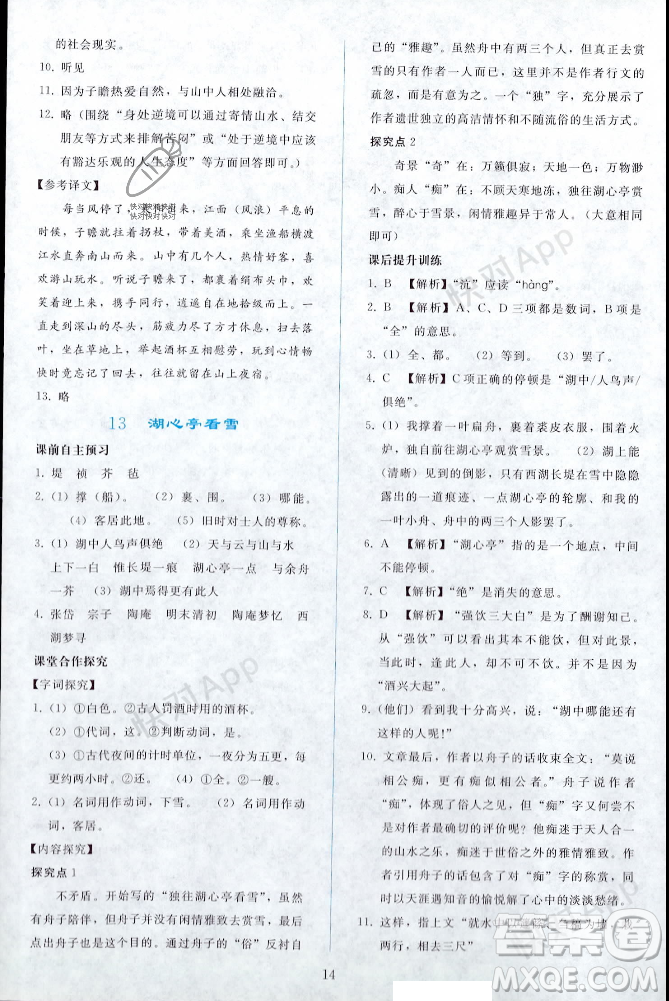 的社会现实。
10. 听见
11. 因为子瞻热爱自然，与山中人相处融洽。
12. 略（围绕“身处逆境可以通过寄情山水、结交
朋友等方式来排解苦闷”或“处于逆境中应该
有豁达乐观的人生态度”等方面回答即可。）
【参考译文】
每当风停了，
来，江面（风浪）平息的
时候，子瞻就拄着拐杖，带着美酒，坐着渔船横渡
江水直奔南山而来。山中有几个人，热情好客，喜
欢游山玩水。听说子瞻到了，裹着绢布头巾，欢笑
着迎上前去，然后携手而上，逍遥自在地行走，一
直走到深山的尽头，筋疲力尽方才停下，扫去落
叶，坐在草地上，举起酒杯互相慰劳，玩到心情畅
快时竟忘记了回去，往往留在山上夜宿。
13. 略
13 湖心亭看雪
课前自主预习
1. 堤 祯 芥 毡
2. （1）撑（船）。 （2）裹、围。 （3）哪能。
（4）客居此地。 （5）旧时对士人的尊称。
3. （1）湖中人鸟声俱绝 （2）天与云与山与水
上下一白 惟长堤一痕 湖心亭一点 与余舟
一芥 （3）湖中焉得更有此人
4. 张岱 宗子 陶庵 明末清初 陶庵梦忆 西
湖梦寻
课堂合作探究
【字词探究】
1. （1）①白色。②古人罚酒时用的酒杯。
（2）①代词，这。②判断动词，是。
（3）①古代夜间的计时单位，一夜分为五更，每
更约两小时。②还。 （4）①全。②一艘。
2. （1）名词用作动词，下雪。 （2）名词用作动
词，客居。
【内容探究】
探究点 1
不矛盾。开始写的“独往湖心亭看雪”，虽然
有舟子陪伴，但舟子并没有闲情雅致去赏雪，最
后点出舟子的话。通过舟子的“俗”反衬自
己的“雅趣”。虽然舟中有两三个人，但真正去赏
雪的只有作者一人而已，这并不是作者行文的
疏忽，而是有意为之。一个“独”字，充分展示了
作者遗世独立的高洁情怀和不随流俗的生活方式。
探究点 2
奇景“奇”在：万籁俱寂；天地一色；万物渺
小。痴人“痴”在：不顾天寒地冻，独往湖心亭赏
雪，醉心于雪景，闲情雅趣异于常人。（大意对
即可）
课后提升训练
1. B 【解析】“沆”应读“hàng”。
2. B 【解析】A、C、D三项都是数词，B项是
“全”的意思。
3. （1）全、都。 （2）等到。 （3）罢了。
4. C 【解析】C项正确的停顿是“湖中/人鸟声/
俱绝”。
5. （1）我撑着一叶扁舟，裹着裘皮衣服，围着火
炉，独自前往湖心亭观赏雪景。 （2）湖上能
（清晰）见到的倒影，只有西湖长堤在雪中隐隐
露出的一道痕迹、一点湖心亭的轮廓、和我的
一叶小舟、舟中的两三个人影罢了。
6. A 【解析】“湖心亭”指的是一个地方，中间不
能停顿。
7. C 【解析】“绝”是消失的意思。
8. D 【解析】“强饮三大白”是为了酬谢知己。
从“强饮”可以看出本不能饮，但对此景，
当此时，逢此人，却不可不饮，而不是因为
“酒兴大起”。
9. （他们）看见我十分高兴，说：“湖中哪能还有
这样的人呢！”
10. 文章最后，作者以舟子的话收束全文：“莫说
相公痴，更有痴似相公者。”舟子所言
“痴”，体现了俗人之见，但这“痴”字又何尝不
是对作者最确切的评价呢？他痴迷于天人合一
的山水之乐，痴迷于世俗之外的雅情雅致。
这里，作者表达了对“痴”字的称赏，同时
表达遇知音的愉悦缓解了心中的淡淡愁绪。
11. 这样，指上文“就水
为堵，其
两行，相去三尺”
14
快对快对快对
快对快对快对
快对App
快对App
快对App
快对App
答案圈
MXQE.COM